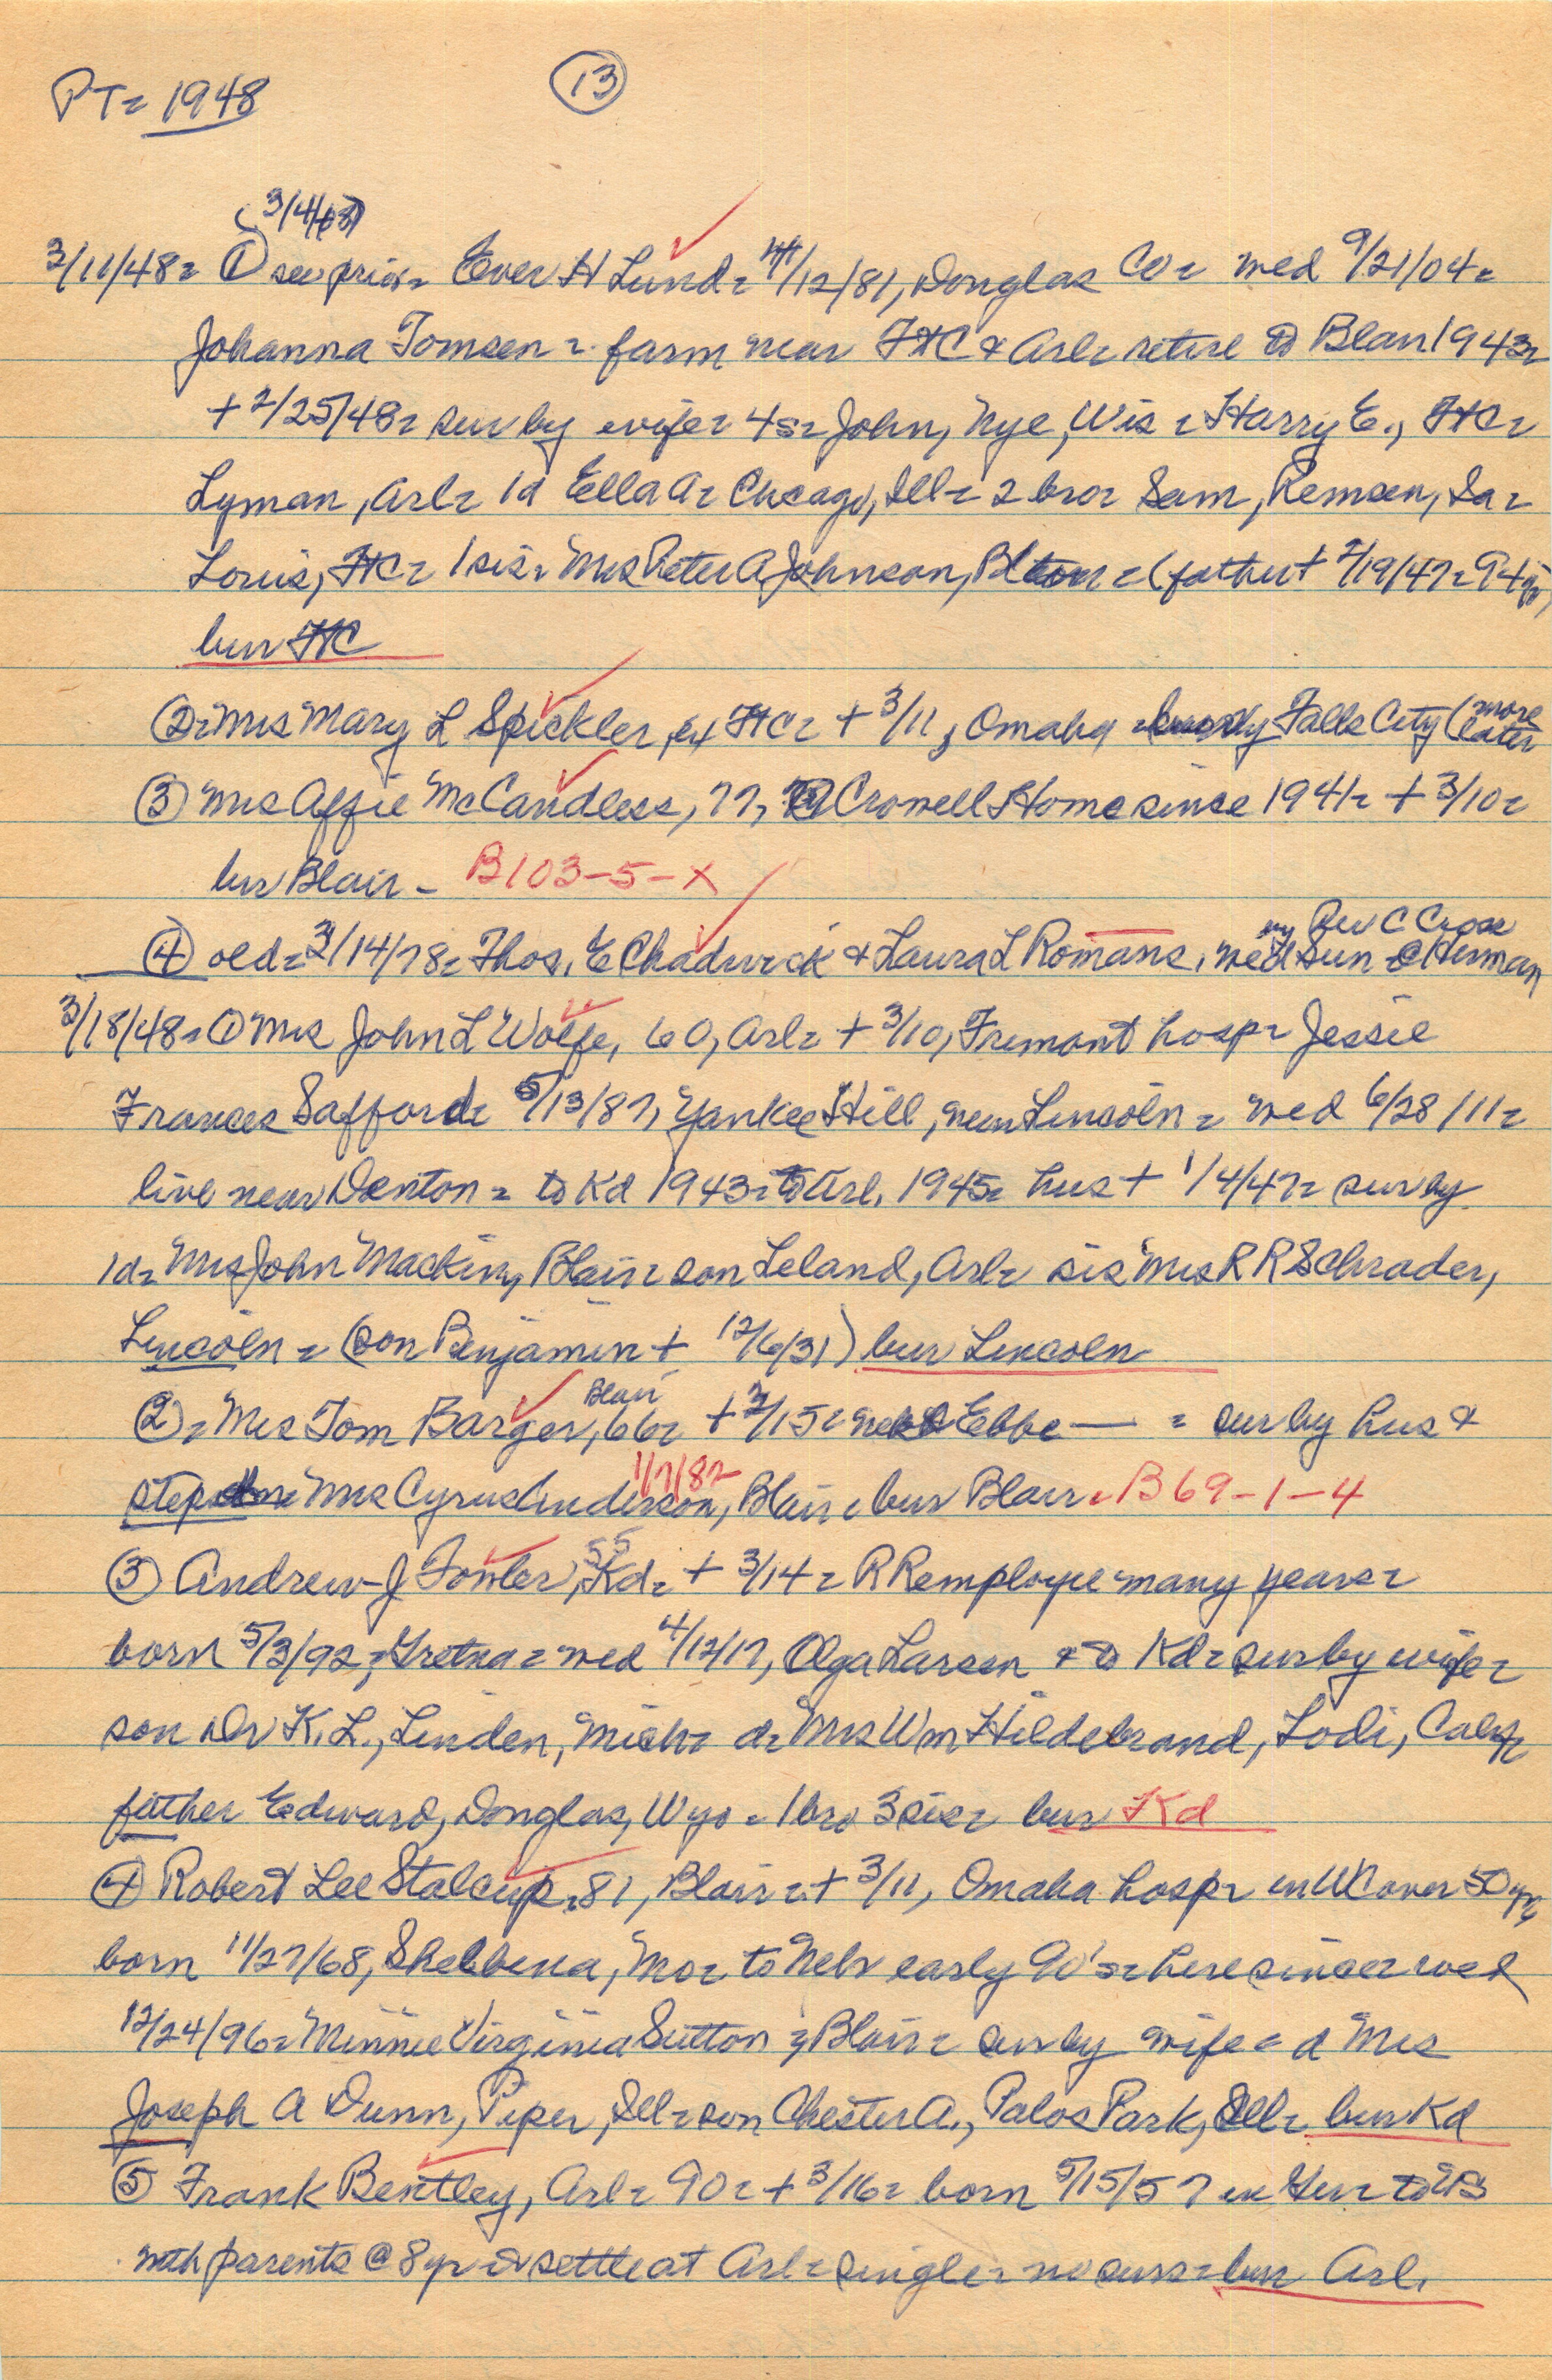 PT = 1948
13
(3/4/48)
3/11/48 = ① see prior = Ever H Lund = 4/12/81, Douglas Co = wed 9/21/04 =
Johanna Tomsen = farm near FtC & Arl = retire to Blair 1943 =
+ 2/25/48 = sur by wife = 4s = John, Nye, Wis = Harry E., FtC =
Lyman, Arl = 1d Ella A = Chicago, Ill = 2 bro = Sam, Remsen, Ia =
Louis, FtC = 1 sis = Mrs Peter A Johnson, = (father + 2/19/47 = 94 yr)
bur FtC
② = Mrs Mary L Spickler, ex FtC = + 3/11, Omaha = Falls City (more later
③ Mrs Affie McCandless, 77, @ Crowell Home since 1941 = + 3/10 =
bur Blair - B103-5-X
by Rev C Cross
④ old = 3/14/78 = Thos. E Chadwick & Laura L Romans, wed Sun @ Herman
3/18/48 = ① Mrs John L Wolfe, 60, Arl = + 3/10, Fremont hosp = Jessie
Frances Safford = 5/13/87, Yankee Hill, near Lincoln = wed 6/28/11 =
live near Denton = to Kd 1943 = to Arl. 1945 = hus + 1/4/47 = sur by
1d = Mrs John Mackin, Blair = son Leland, Arl = sis Mrs R R Schrader,
Lincoln = (son Benjamin + 12/6/31) bur Lincoln
Blair
② = Mrs Tom Barger, 66 = + 3/15 = nee Ebbe — = sur by hus &
1/7/82
step Mrs Cyrus Anderson, Blair = bur Blair = B69-1-4
55
③ Andrew J Fowler, Kd = + 3/14 = RR employee many years =
born 5/3/92, Gretna = wed 4/12/17, Olga Larsen & to Kd = sur by wife =
son Dr K. L., Linden, Mich = d = Mrs Wm Hildebrand, Lodi, Calif =
father Edward, Douglas, Wyo = 1 bro 3 sis = bur Kd
④ Robert Lee Stalcup, 81, Blair = + 3/11, Omaha hosp = in WC over 50 yrs
born 11/27/68, Shelbina, Mo = to Nebr early 90's = here since = wed
12/24/96 = Minnie Virginia Sutton, Blair = sur by wife = d Mrs
Joseph A Dunn, Piper, Ill = son Chester A., Palos Park, Ill = bur Kd
⑤ Frank Bentley, Arl = 90 = + 3/16 = born 5/15/57 in Ger = to US
with parents @ 8 yr & settle at Arl = single = no surs = bur Arl.